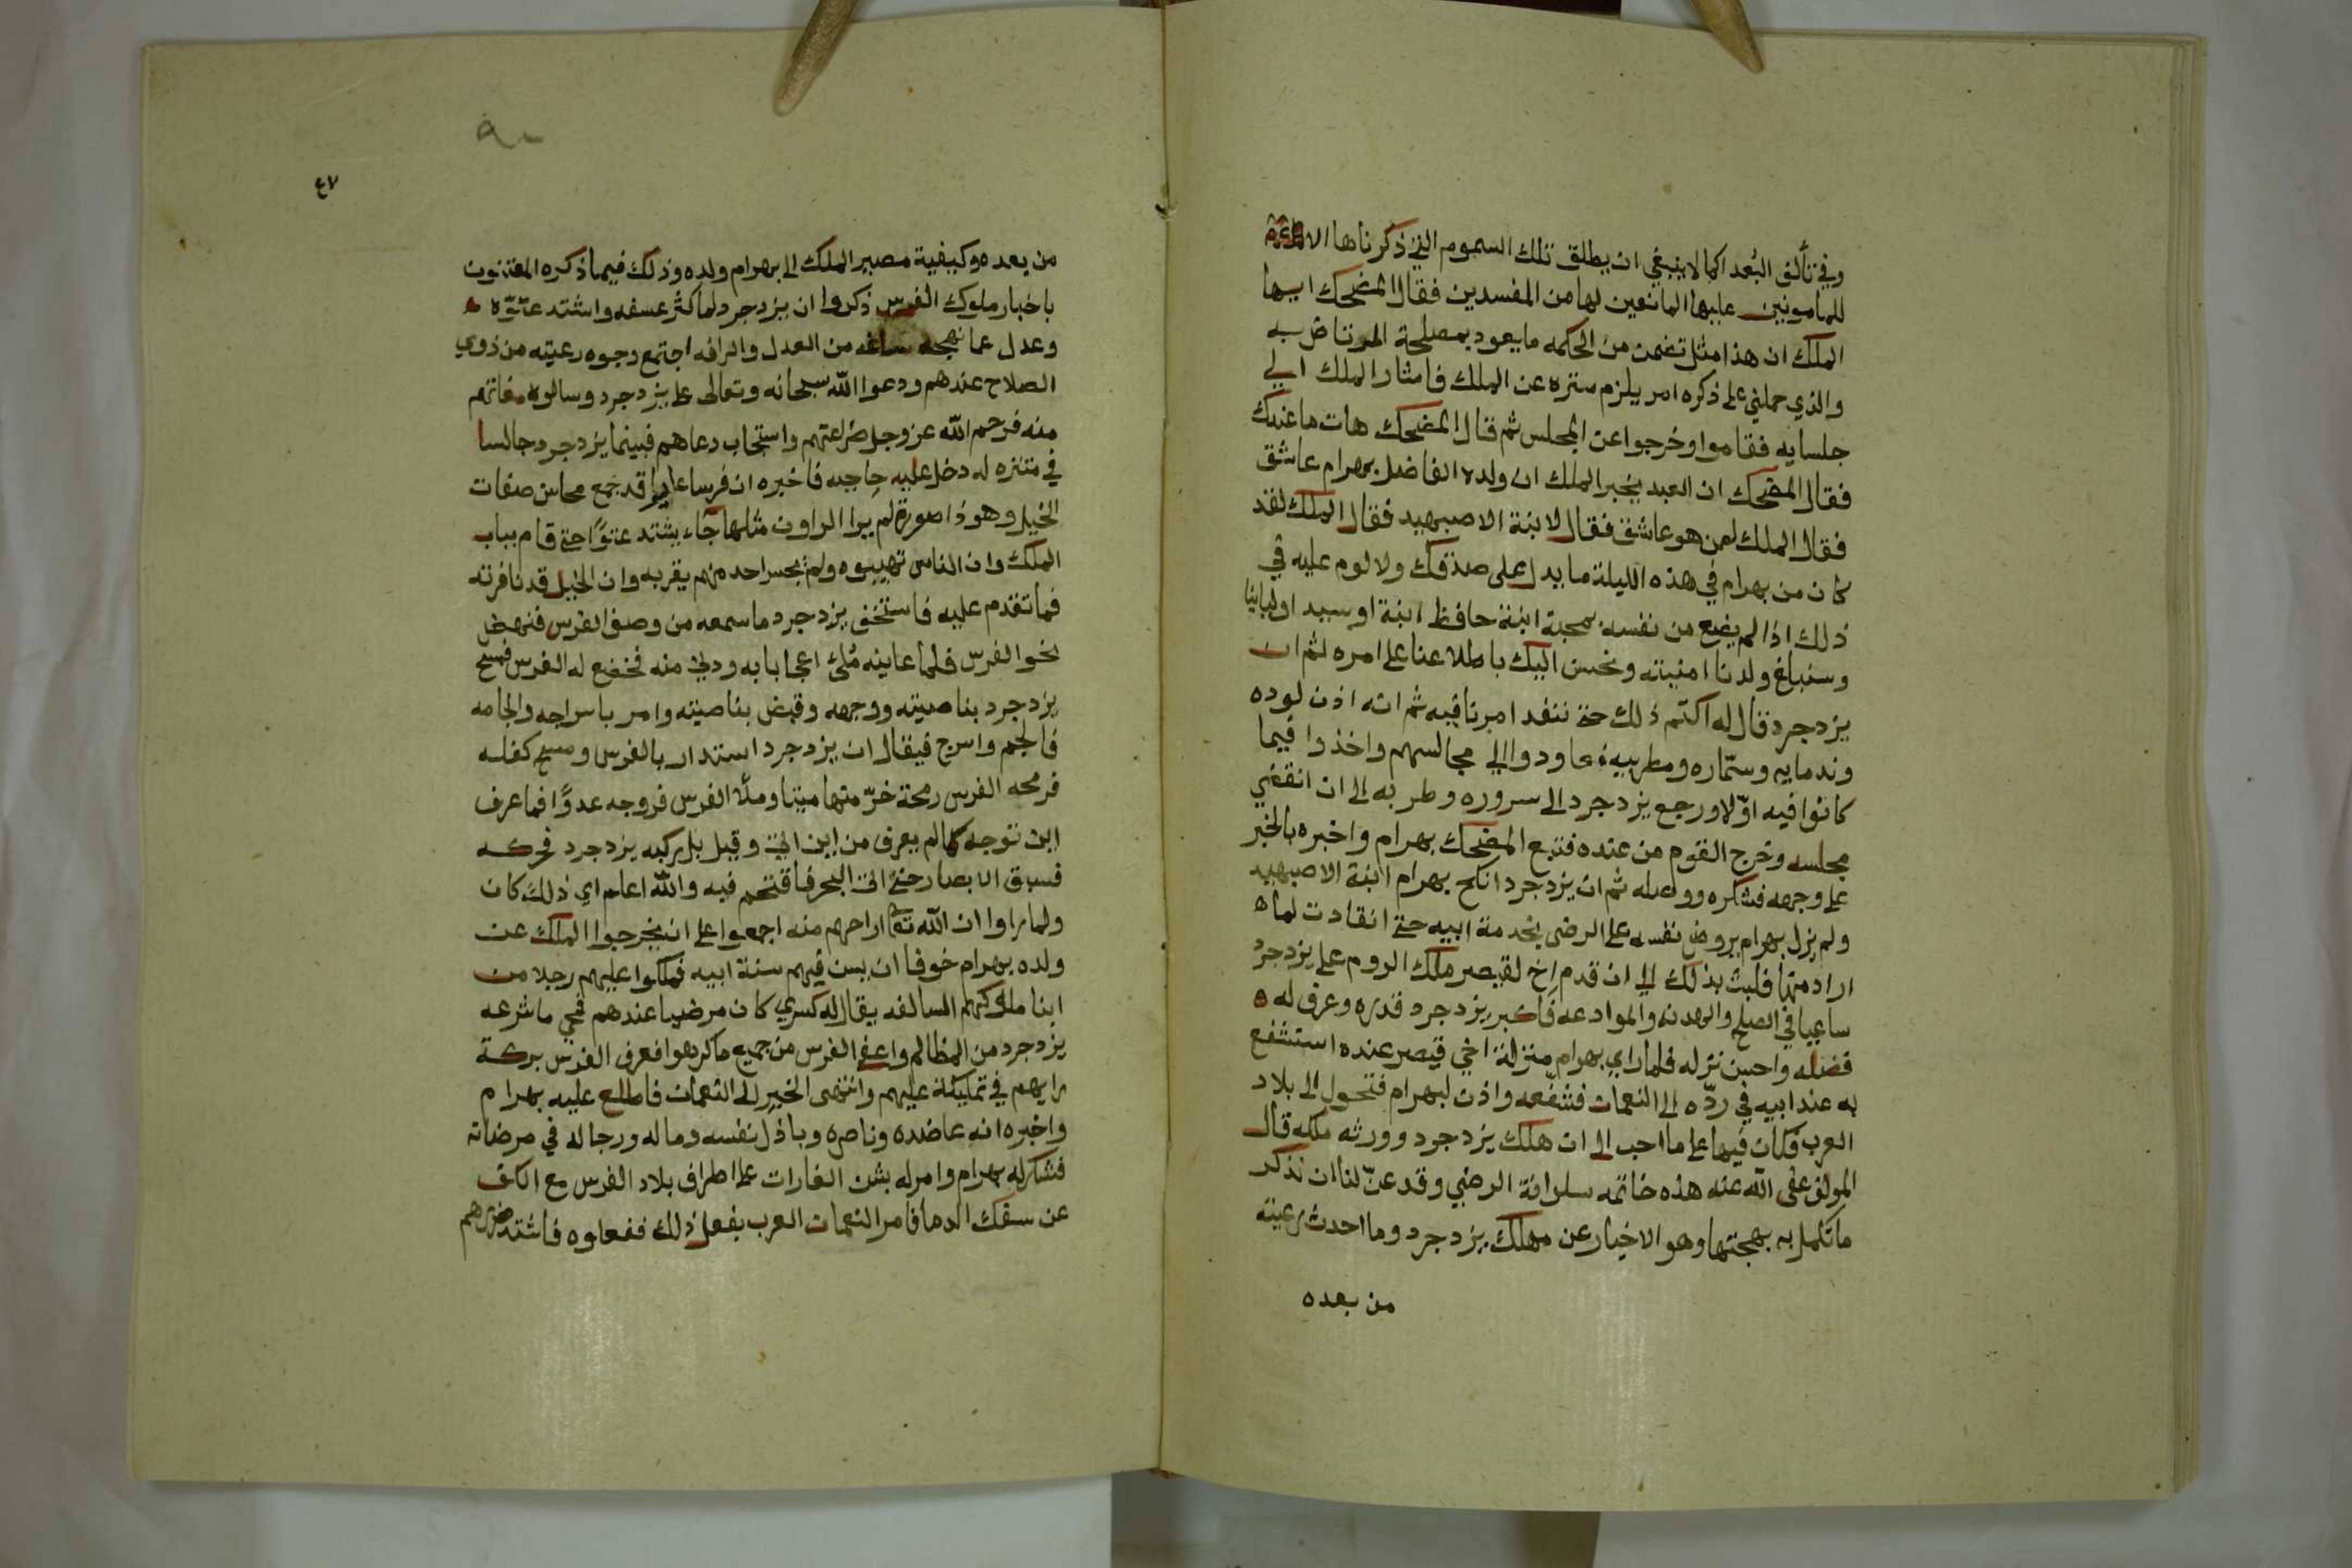 وفي تألف البُعداكما لا ينبغي ان يطلق تلك السموم التي ذكرناها الا
للمامونين عليها المانعين لها من المفسدين فقال المضحك ايها
الملك ان هذا مثل تضمن من الحكمه ما يعود بمصلحة المرتاض به
والذي حملني على ذكره امر يلزم ستره عن الملك فاشار الملك الي
جلسايه فقاموا وخرجوا عن المجلس ثم قال المضحك هات ما عندك
فقال المضحك ان العبد يخبر الملك ان ولده الفاضل بهرام عاشق
فقال الملك لمن هو عاشق فقال لابنة الاصبهبد فقال الملك لقد
كان من بهرام في هذه الليلة ما يدل على صدقك ولا لوم عليه في
ذلك اذا لم يضع من نفسه بمحبة ابنة حافظ ابنة او سيد اوليائنا
وسنبلغ ولدنا امنيته ونحسن اليك باطلاعنا على امره ثم ان
يزدجرد قال له اكتم ذلك حتى ننفذ امرنا فيه ثم انه اذن لوده
وندمايه وسمّاره ومطربيه فعاودوا الي مجالسهم واخذوا فيما
كانوا فيه اوّلا ورجع يزدجرد الى سروره وطربه الى ان انقضي
مجلسه وخرج القوم من عنده فتبع المضحك بهرام واخبره بالخبر
على وجهه فشكره ووصله ثم ان يزدجرد انكح بهرام ابنة الاصبهبد
ولم يزل بهرام يروض نفسه على الرضى بخدمة ابيه حتى انقادت لما ه
اراد منها فلبث بذلك الي ان قدم اخ لقيصر ملك الروم على يزدجرد
ساعيا في الصلح والهدنه والموادعه فاكبر يزدجرد قدره وعرف له ه
فضله واحسن نزله فلما راي بهرام منزلة اخي قيصر عنده استشفع
به عند ابيه في ردّه الى النعمان فشفّعه واذن لبهرام فتحول الى بلاد
العرب فكان فيها على ما احب الى ان هلك يزدجرد وورثه ملكه قال
المولف عفى الله عنه هذه خاتمه سلوانة الرضي وقد عنّ لنا ان نذكر
ما تكمل به بهجتها وهو الاخبار عن مهلك يزدجرد وما احدث رعيته
من بعده
٤٧
من بعده وكيفية مصير الملك الى بهرام ولده وذلك فيما ذكره المعتنون
باخبار ملوك الفرس ذكروا ان يزدجرد لما كثر عسفه واشتد عتوّه
وعدل عما نهجه سلفه من العدل والرافه اجتمع وجوه رعيته من ذوي
الصلاح عندهم ودعوا الله سبحانه وتعالى على يزدجرد وسالوه معافاتهم
منه فرحم الله عز وجل ضراعتهم واستجاب دعاهم فبينما يزدجرد جالسا
في متنزه له دخل عليه حاجبه فاخبره ان فرسا عايرا قد جمع محاسن صفات
الخيل وهو ذا صورة لم يرا الراون مثلها جاء يشتد عتوًا حتى قام بباب
الملك وان الناس تهيبوه ولم يجسر احد منهم يقربه وان الخيل قد نافرته
فما تقدم عليه فاستخف يزدجرد ما سمعه من وصف الفرس فنهض
نحو الفرس فلما عاينه ملئ اعجابا به ودنى منه فخضع له الفرس فمسح
يزدجرد بناصيته ووجهه وقبض بناصيته وامر باسراجه والجامه
فالجم واسرج فيقال ان يزدجرد استدار بالفرس ومسح كفله
فرمحه الفرس رمحة خرّ منها ميتا وملأ الفرس فروجه عدوًا فما عرف
اين توجه كما لم يعرف من اين اتى وقيل بل ركبه يزدجرد فحركه
فسبق الابصار حتى اتى البحر فاقتحم فيه والله اعلم اي ذلك كان
ولما راوا ان الله تعالى اراحهم منه اجمعوا على ان يخرجوا الملك عن
ولده بهرام خوفا ان يسن فيهم سنة ابيه فملكوا عليهم رجلا من
ابنا ملوكهم السالفه يقال له كسري كان مرضيا عندهم فمحي ما شرعه
يزدجرد من المظالم واعفى الفرس من جميع ما كرهوا فعرف الفرس بركة
رايهم في تمليكه عليهم وانتهى الخبر الى النعمان فاطلع عليه بهرام
واخبره انه عاضده وناصره وباذل نفسه وماله ورجاله في مرضاته
فشكر له بهرام وامر له بشن الغارات على اطراف بلاد الفرس مع الكف
عن سفك الدما فامر النعمان العرب بفعل ذلك ففعلوه فاشتد ضررهم